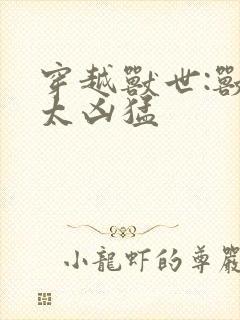 穿越獸世:獸
太凶猛
小龍虾的尊嚴